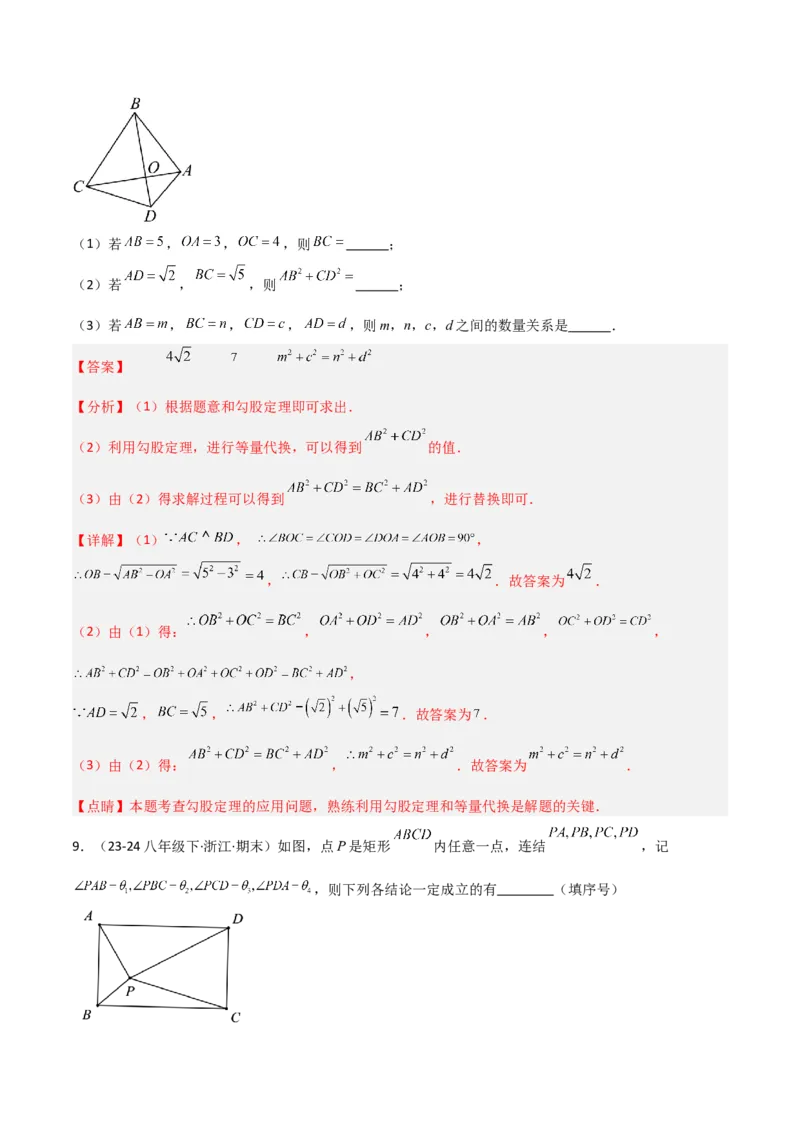 B
O
A
C
D
（1）若AB＝5，OA＝3，OC＝4，则BC＝______；
（2）若AD＝√2，BC＝√5，则AB²＋CD²＝______；
（3）若AB＝m，BC＝n，CD＝c，AD＝d，则m，n，c，d之间的数量关系是______．
【答案】 4√2 7 m²＋c²＝n²＋d²
【分析】（1）根据题意和勾股定理即可求出．
（2）利用勾股定理，进行等量代换，可以得到AB²＋CD²的值．
（3）由（2）得求解过程可以得到AB²＋CD²＝BC²＋AD²，进行替换即可．
【详解】（1）∵AC ^ BD，∴∠BOC＝∠COD＝∠DOA＝∠AOB＝90°，
∴OB＝√(AB²－OA²)＝√(5²－3²)＝4，∴CB＝√(OB²＋OC²)＝√(4²＋4²)＝4√2．故答案为4√2．
（2）由（1）得：∴OB²＋OC²＝BC²，OA²＋OD²＝AD²，OB²＋OA²＝AB²，OC²＋OD²＝CD²，
∴AB²＋CD²＝OB²＋OA²＋OC²＋OD²＝BC²＋AD²，
∵AD＝√2，BC＝√5，∴AB²＋CD²＝(√2)²＋(√5)²＝7．故答案为7．
（3）由（2）得：AB²＋CD²＝BC²＋AD²，∴m²＋c²＝n²＋d²．故答案为m²＋c²＝n²＋d²．
【点睛】本题考查勾股定理的应用问题，熟练利用勾股定理和等量代换是解题的关键．
9．（23-24八年级下·浙江·期末）如图，点P是矩形ABCD内任意一点，连结PA,PB,PC,PD，记
∠PAB＝θ₁,∠PBC＝θ₂,∠PCD＝θ₃,∠PDA＝θ₄，则下列各结论一定成立的有________（填序号）
A
D
P
B
C